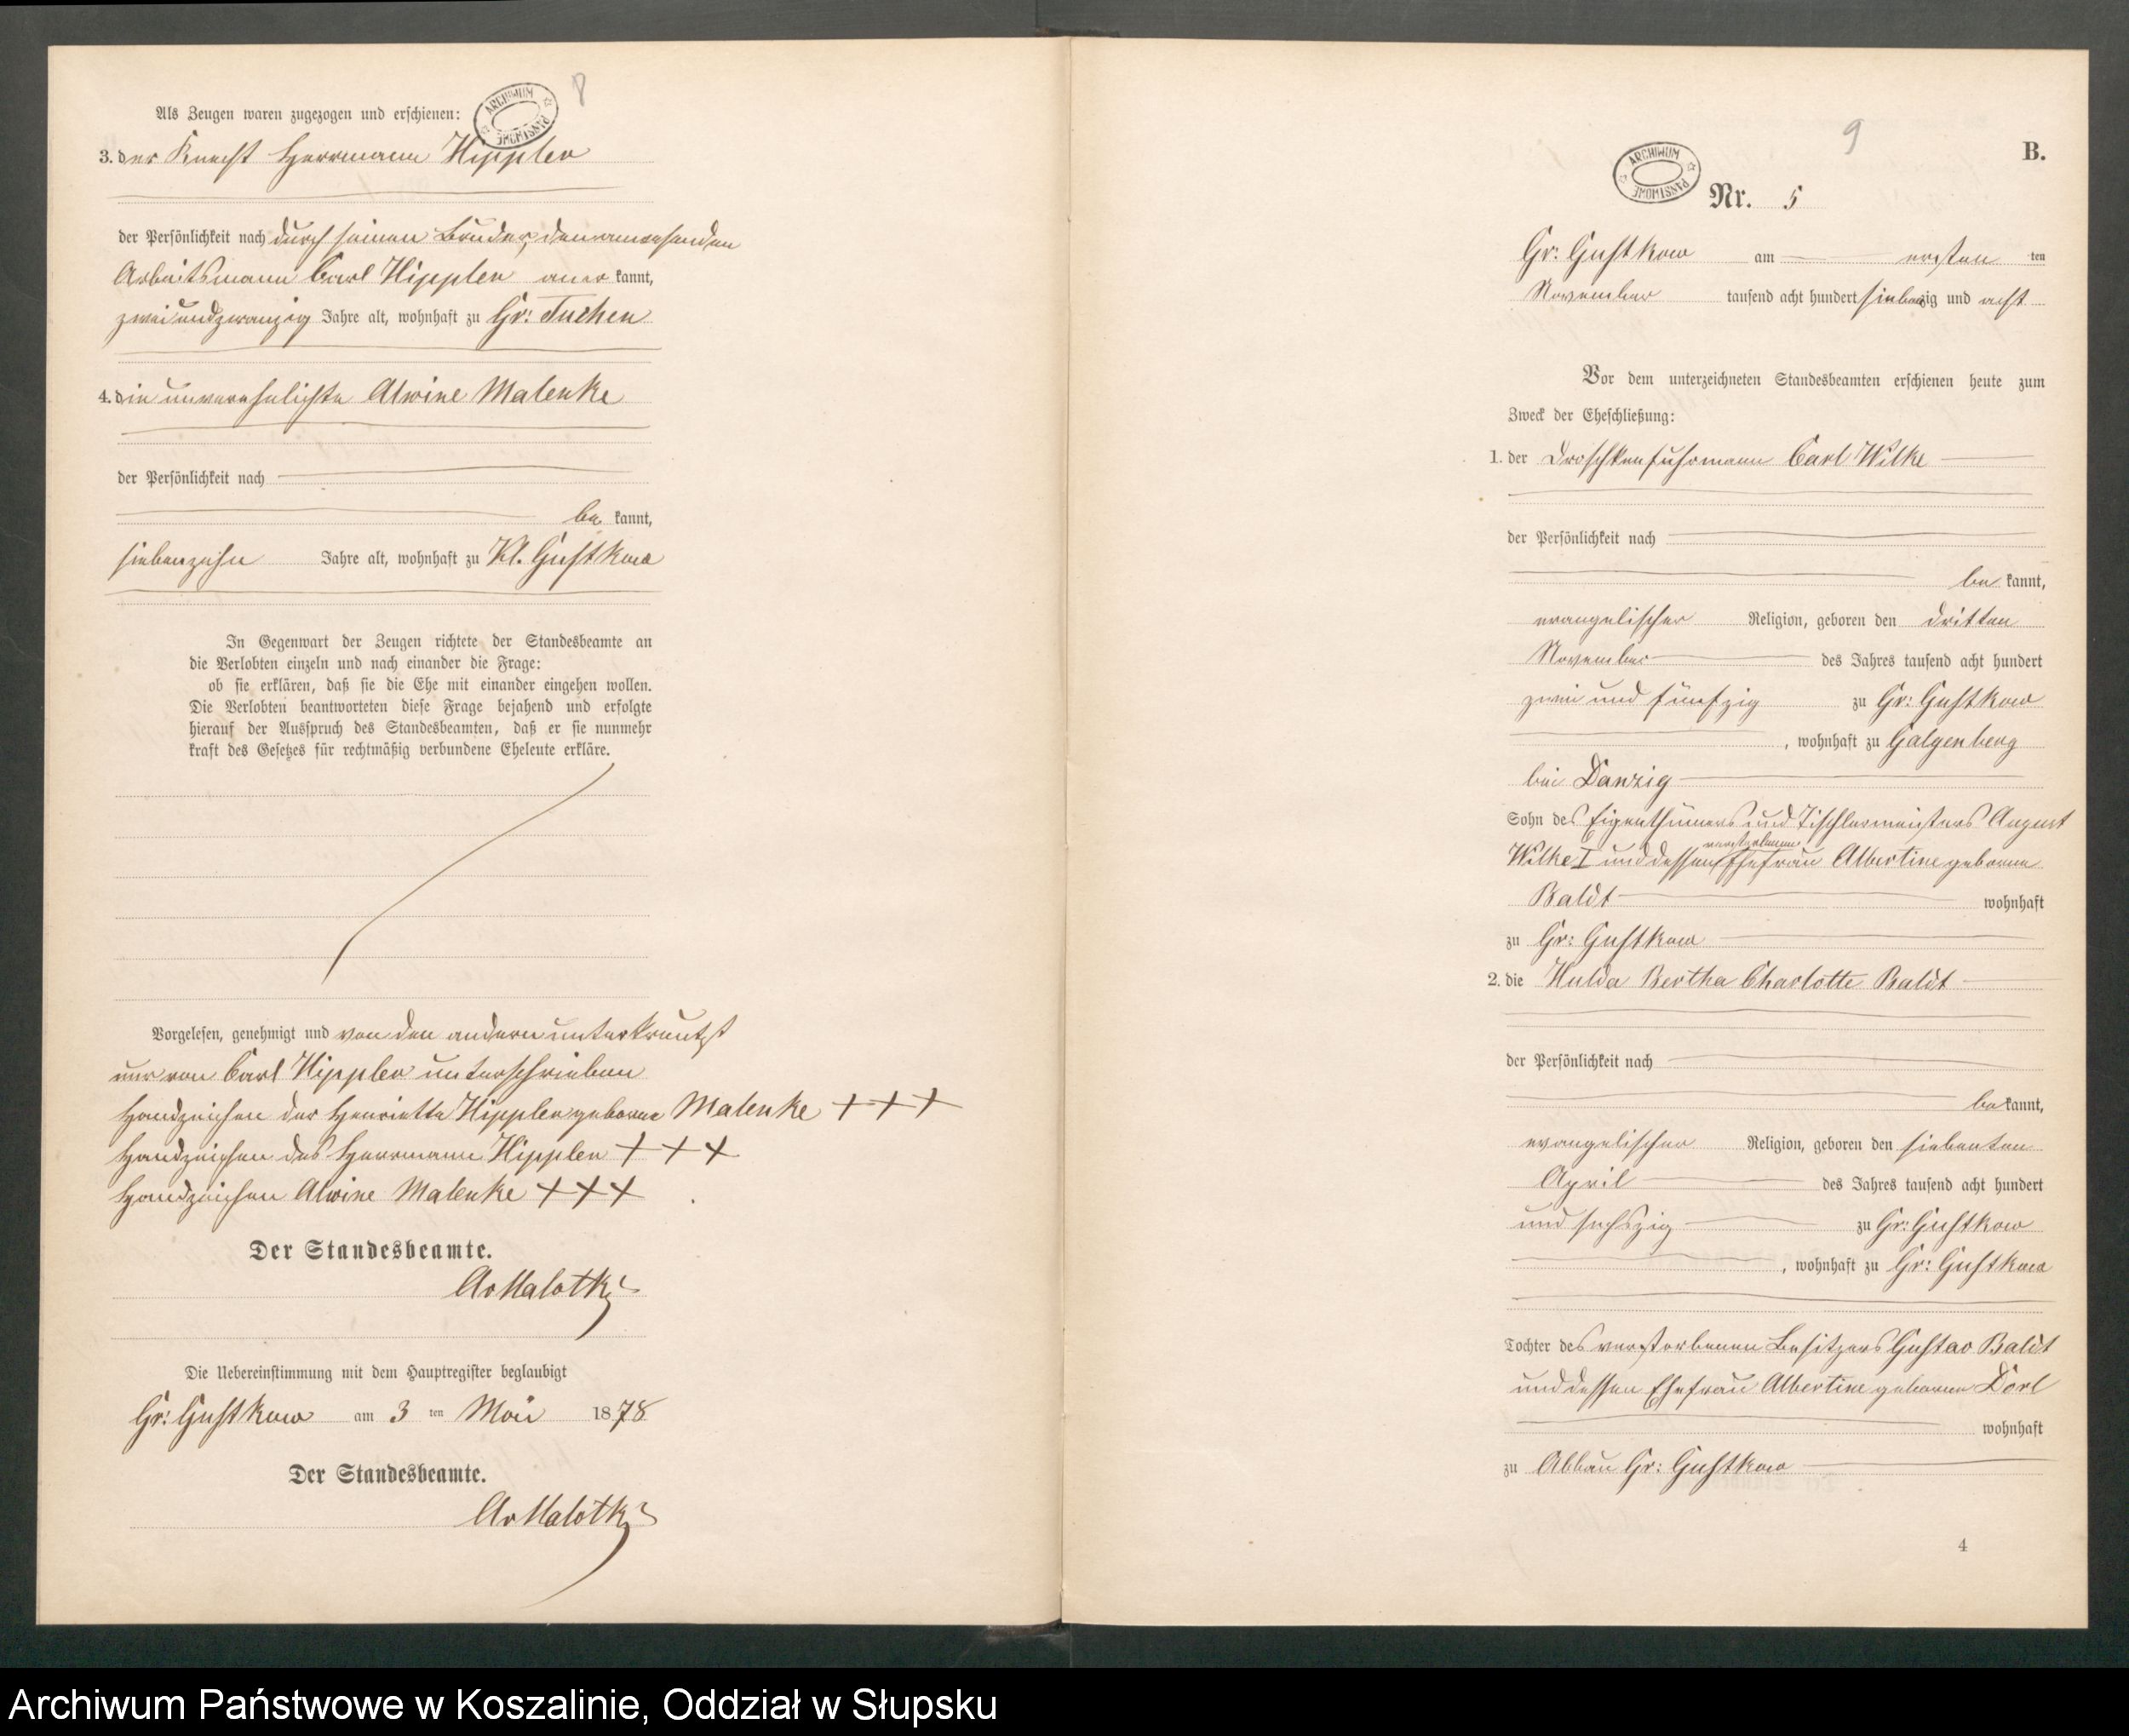 8
ARCHIWUM PAŃSTWOWE
Als Zeugen waren zugezogen und erschienen:
3. der Knecht Herrmann Hippler
der Persönlichkeit nach durch seinen Bruder, den anwesenden
Arbeitsmann Carl Hippler aner kannt,
zwei und zwanzig Jahre alt, wohnhaft zu Gr: Tuchen
4. die unverehelichte Alwine Malenke
der Persönlichkeit nach
be kannt,
siebenzehn Jahre alt, wohnhaft zu Kl. Gustkow
In Gegenwart der Zeugen richtete der Standesbeamte an
die Verlobten einzeln und nach einander die Frage:
ob sie erklären, daß sie die Ehe mit einander eingehen wollen.
Die Verlobten beantworteten diese Frage bejahend und erfolgte
hierauf der Ausspruch des Standesbeamten, daß er sie nunmehr
kraft des Gesetzes für rechtmäßig verbundene Eheleute erkläre.
Vorgelesen, genehmigt und von den andern unterkreutzt
nur von Carl Hippler unterschrieben
Handzeichen der Henriette Hippler geborne Malenke +++
Handzeichen des Herrmann Hippler +++
Handzeichen Alwine Malenke +++
Der Standesbeamte.
AvMalotki
Die Uebereinstimmung mit dem Hauptregister beglaubigt
Gr: Gustkow am 3 ten Mai 1878
Der Standesbeamte.
AvMalotki
9
B.
ARCHIWUM PAŃSTWOWE
Nr. 5
Gr: Gustkow am ersten ten
November tausend acht hundert siebenzig und acht
Vor dem unterzeichneten Standesbeamten erschienen heute zum
Zweck der Eheschließung:
1. der Droschkenfuhrmann Carl Wilke
der Persönlichkeit nach
be kannt,
evangelischer Religion, geboren den dritten
November des Jahres tausend acht hundert
zwei und fünfzig zu Gr: Gustkow
, wohnhaft zu Galgenberg
bei Danzig
Sohn des Eigenthümers und Tischlermeisters August
Wilke I und dessen verstorbenen Ehefrau Albertine geborne
Baldt wohnhaft
zu Gr: Gustkow
2. die Hulda Bertha Charlotte Baldt
der Persönlichkeit nach
be kannt,
evangelischer Religion, geboren den siebenten
April des Jahres tausend acht hundert
und sechszig zu Gr: Gustkow
, wohnhaft zu Gr: Gustkow
Tochter des verstorbenen Besitzers Gustav Baldt
und dessen Ehefrau Albertine geborne Dorl
wohnhaft
zu Abbau Gr: Gustkow
4
Archiwum Państwowe w Koszalinie, Oddział w Słupsku